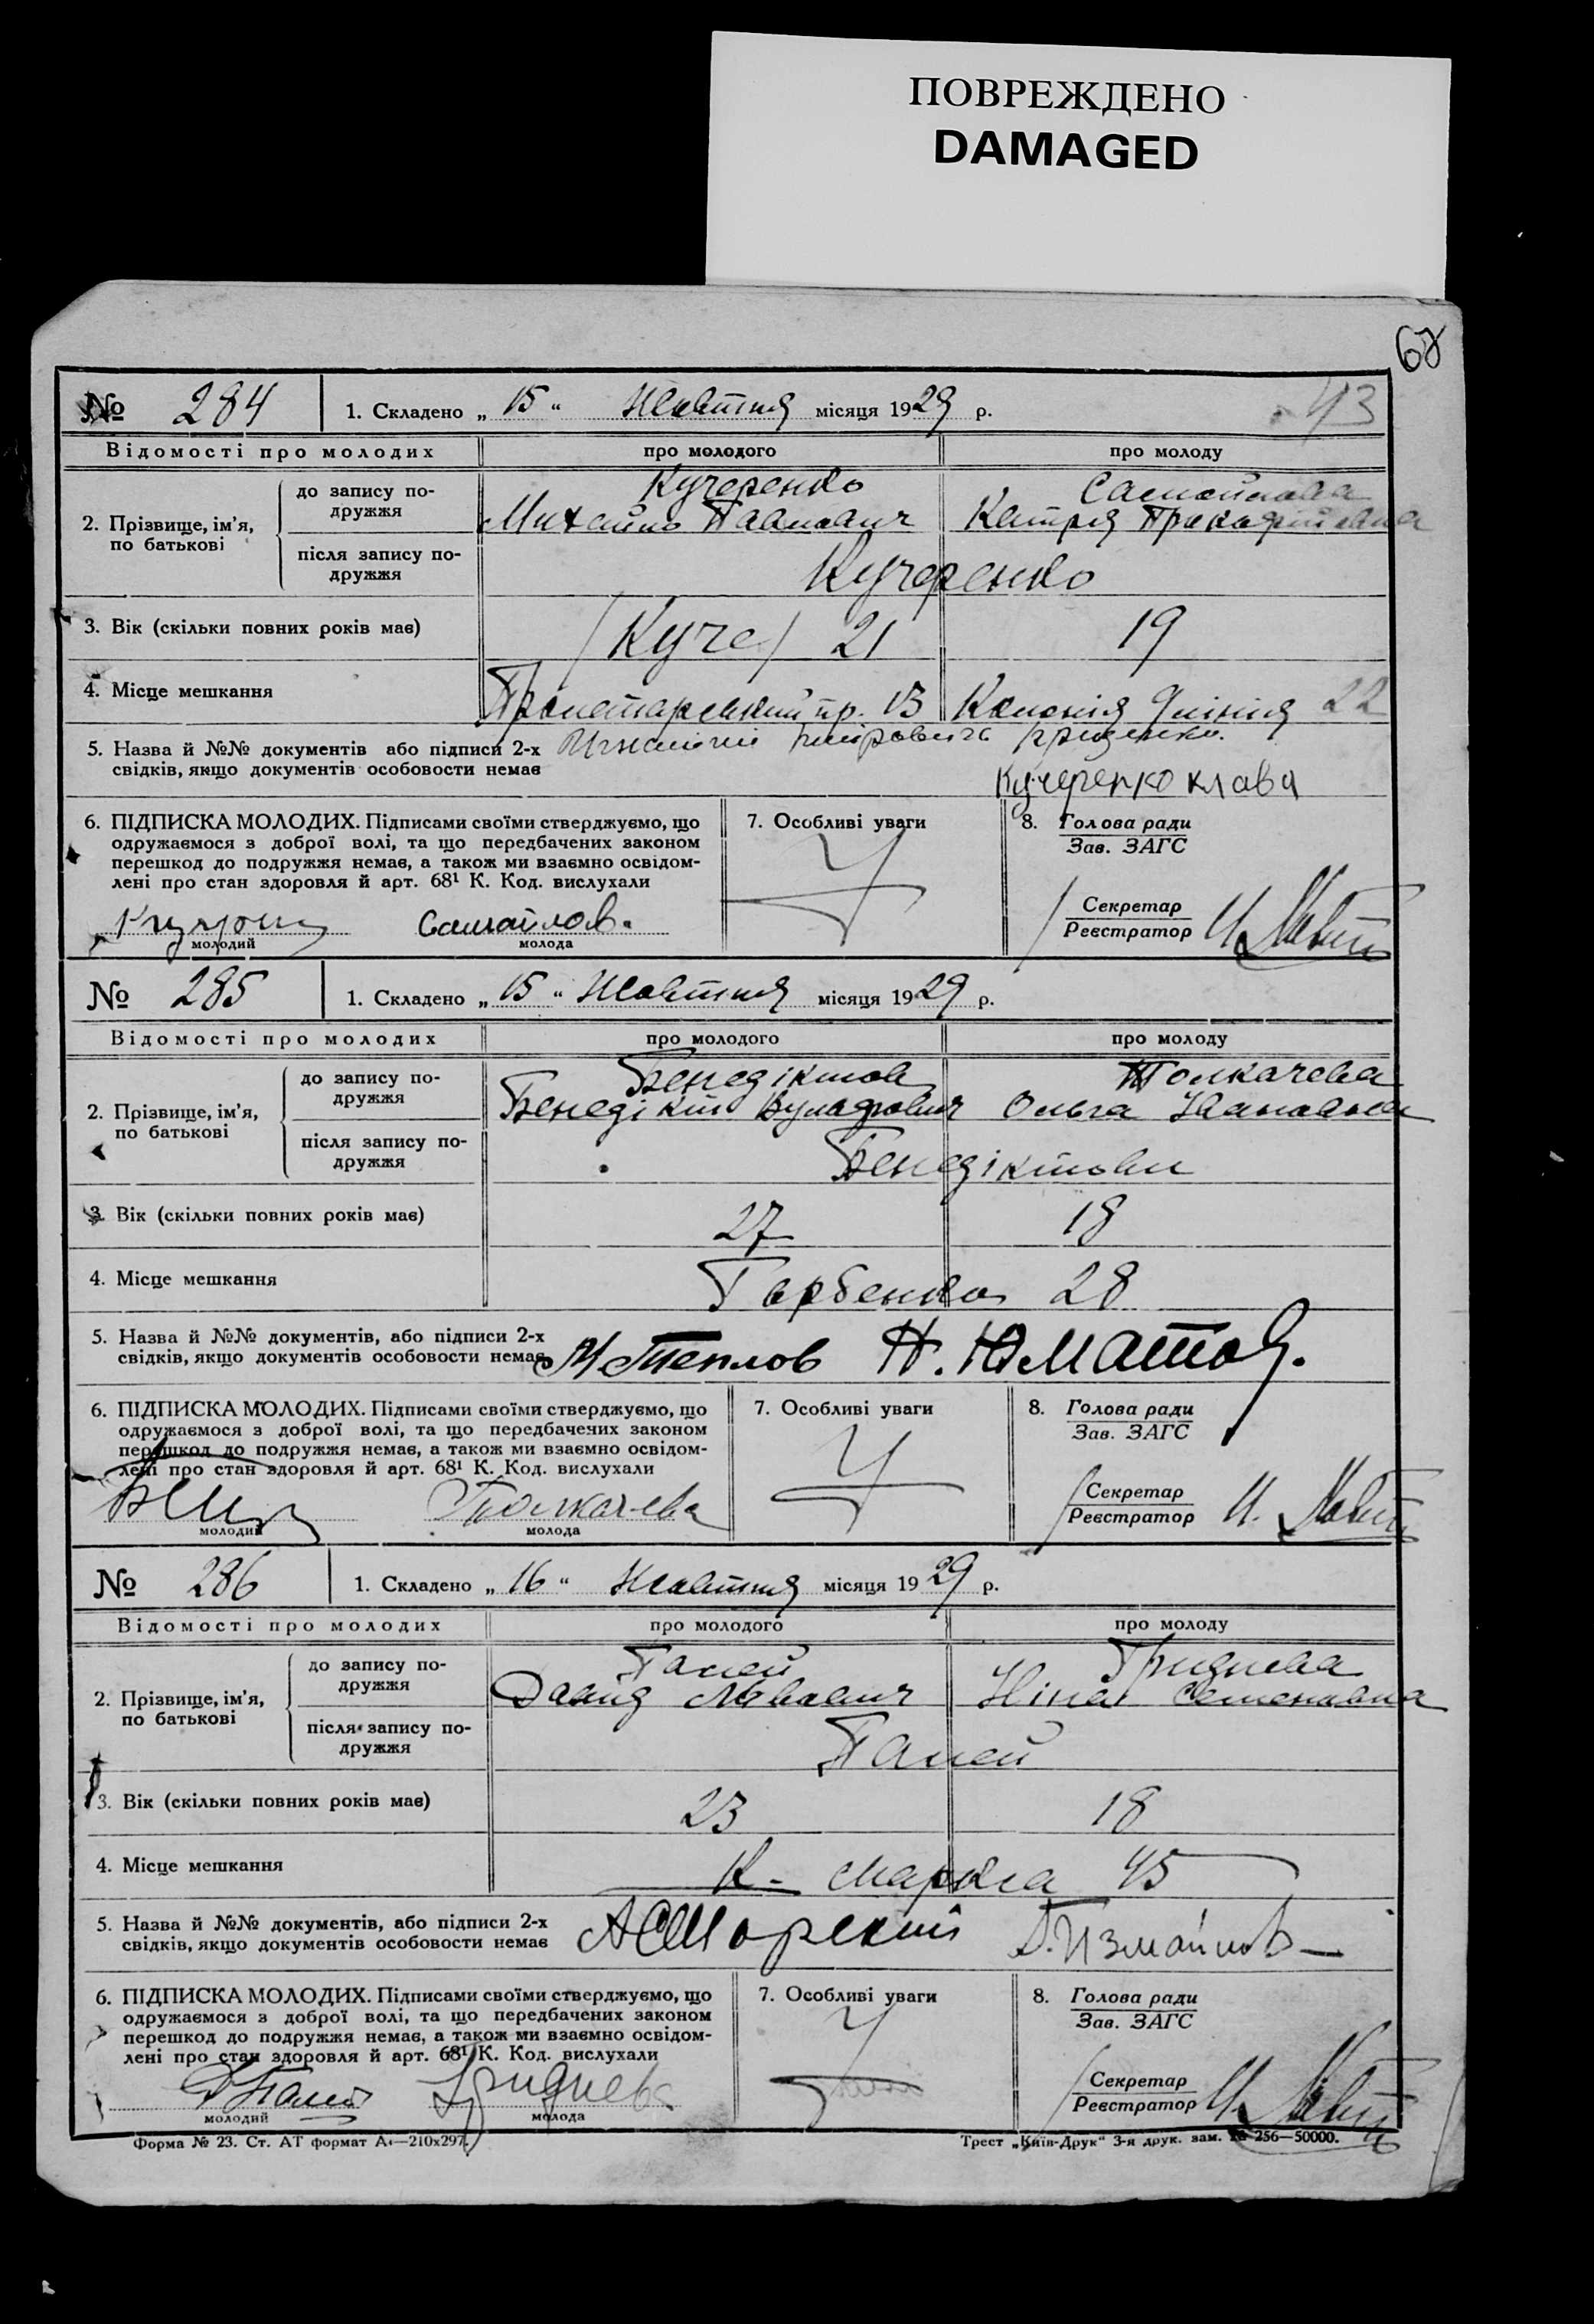 ПОВРЕЖДЕНО
DAMAGED
68
43
№ 284 1. Складено „ 15 “ Жовтня місяця 1929 р.
Відомості про молодих про молодого про молоду
2. Прізвище, ім’я, по батькові
до запису по-
дружжя
Кучеренко Самойлова
Михайло Павлович Катря Прокофіївна
після запису по-
дружжя
Кучеренко
3. Вік (скільки повних років має) /Куче/ 21 19
4. Місце мешкання Пролетарський пр. 13 Колонія Ілліча 22
5. Назва й №№ документів або підписи 2-х
свідків, якщо документів особовости немає
Кучеренко клава
6. ПІДПИСКА МОЛОДИХ. Підписами своїми стверджуємо, що
одружаємося з доброї волі, та що передбачених законом
перешкод до подружжя немає, а також ми взаємно освідом-
лені про стан здоров�ля й арт. 68¹ К. Код. вислухали
Самойлов
молодий молода
7. Особливі уваги
8. Голова ради
Зав. ЗАГС
Секретар
Реєстратор
№ 285 1. Складено „ 15 “ Жовтня місяця 1929 р.
Відомості про молодих про молодого про молоду
2. Прізвище, ім’я, по батькові
до запису по-
дружжя
Бенедіктов Толкачева
Бенедікт Ольга Івановна
після запису по-
дружжя
Бенедіктови
3. Вік (скільки повних років має) 27 18
4. Місце мешкання Горбенко 28
5. Назва й №№ документів, або підписи 2-х
свідків, якщо документів особовости немає
Теплов Н. Юматов.
6. ПІДПИСКА МОЛОДИХ. Підписами своїми стверджуємо, що
одружаємося з доброї волі, та що передбачених законом
перешкод до подружжя немає, а також ми взаємно освідом-
лені про стан здоровля й арт. 68¹ К. Код. вислухали
Толкачева
молодий молода
7. Особливі уваги
8. Голова ради
Зав. ЗАГС
Секретар
Реєстратор
№ 286 1. Складено „ 16 “ Жовтня місяця 1929 р.
Відомості про молодих про молодого про молоду
2. Прізвище, ім’я, по батькові
до запису по-
дружжя
Палей Гриднева
Давид Львович Ніна Семеновна
після запису по-
дружжя
Палей
3. Вік (скільки повних років має) 23 18
4. Місце мешкання К. Маркса 45
5. Назва й №№ документів, або підписи 2-х
свідків, якщо документів особовости немає
Измайлов
6. ПІДПИСКА МОЛОДИХ. Підписами своїми стверджуємо, що
одружаємося з доброї волі, та що передбачених законом
перешкод до подружжя немає, а також ми взаємно освідом-
лені про стан здоровля й арт. 68¹ К. Код. вислухали
Д Палей Гриднева
молодий молода
7. Особливі уваги
8. Голова ради
Зав. ЗАГС
Секретар
Реєстратор
Форма № 23. Ст. АТ формат А₄—210х297. Трест „Київ-Друк“ 3-я друк. зам. № 256—50000.